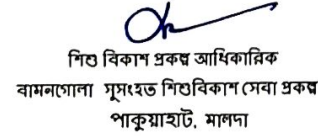 শিশু বিকাশ প্রকল্প আধিকারিক
বামনগোলা সুসংহত শিশুবিকাশ সেবা প্রকল্প
পাকুয়াহাট, মালদা